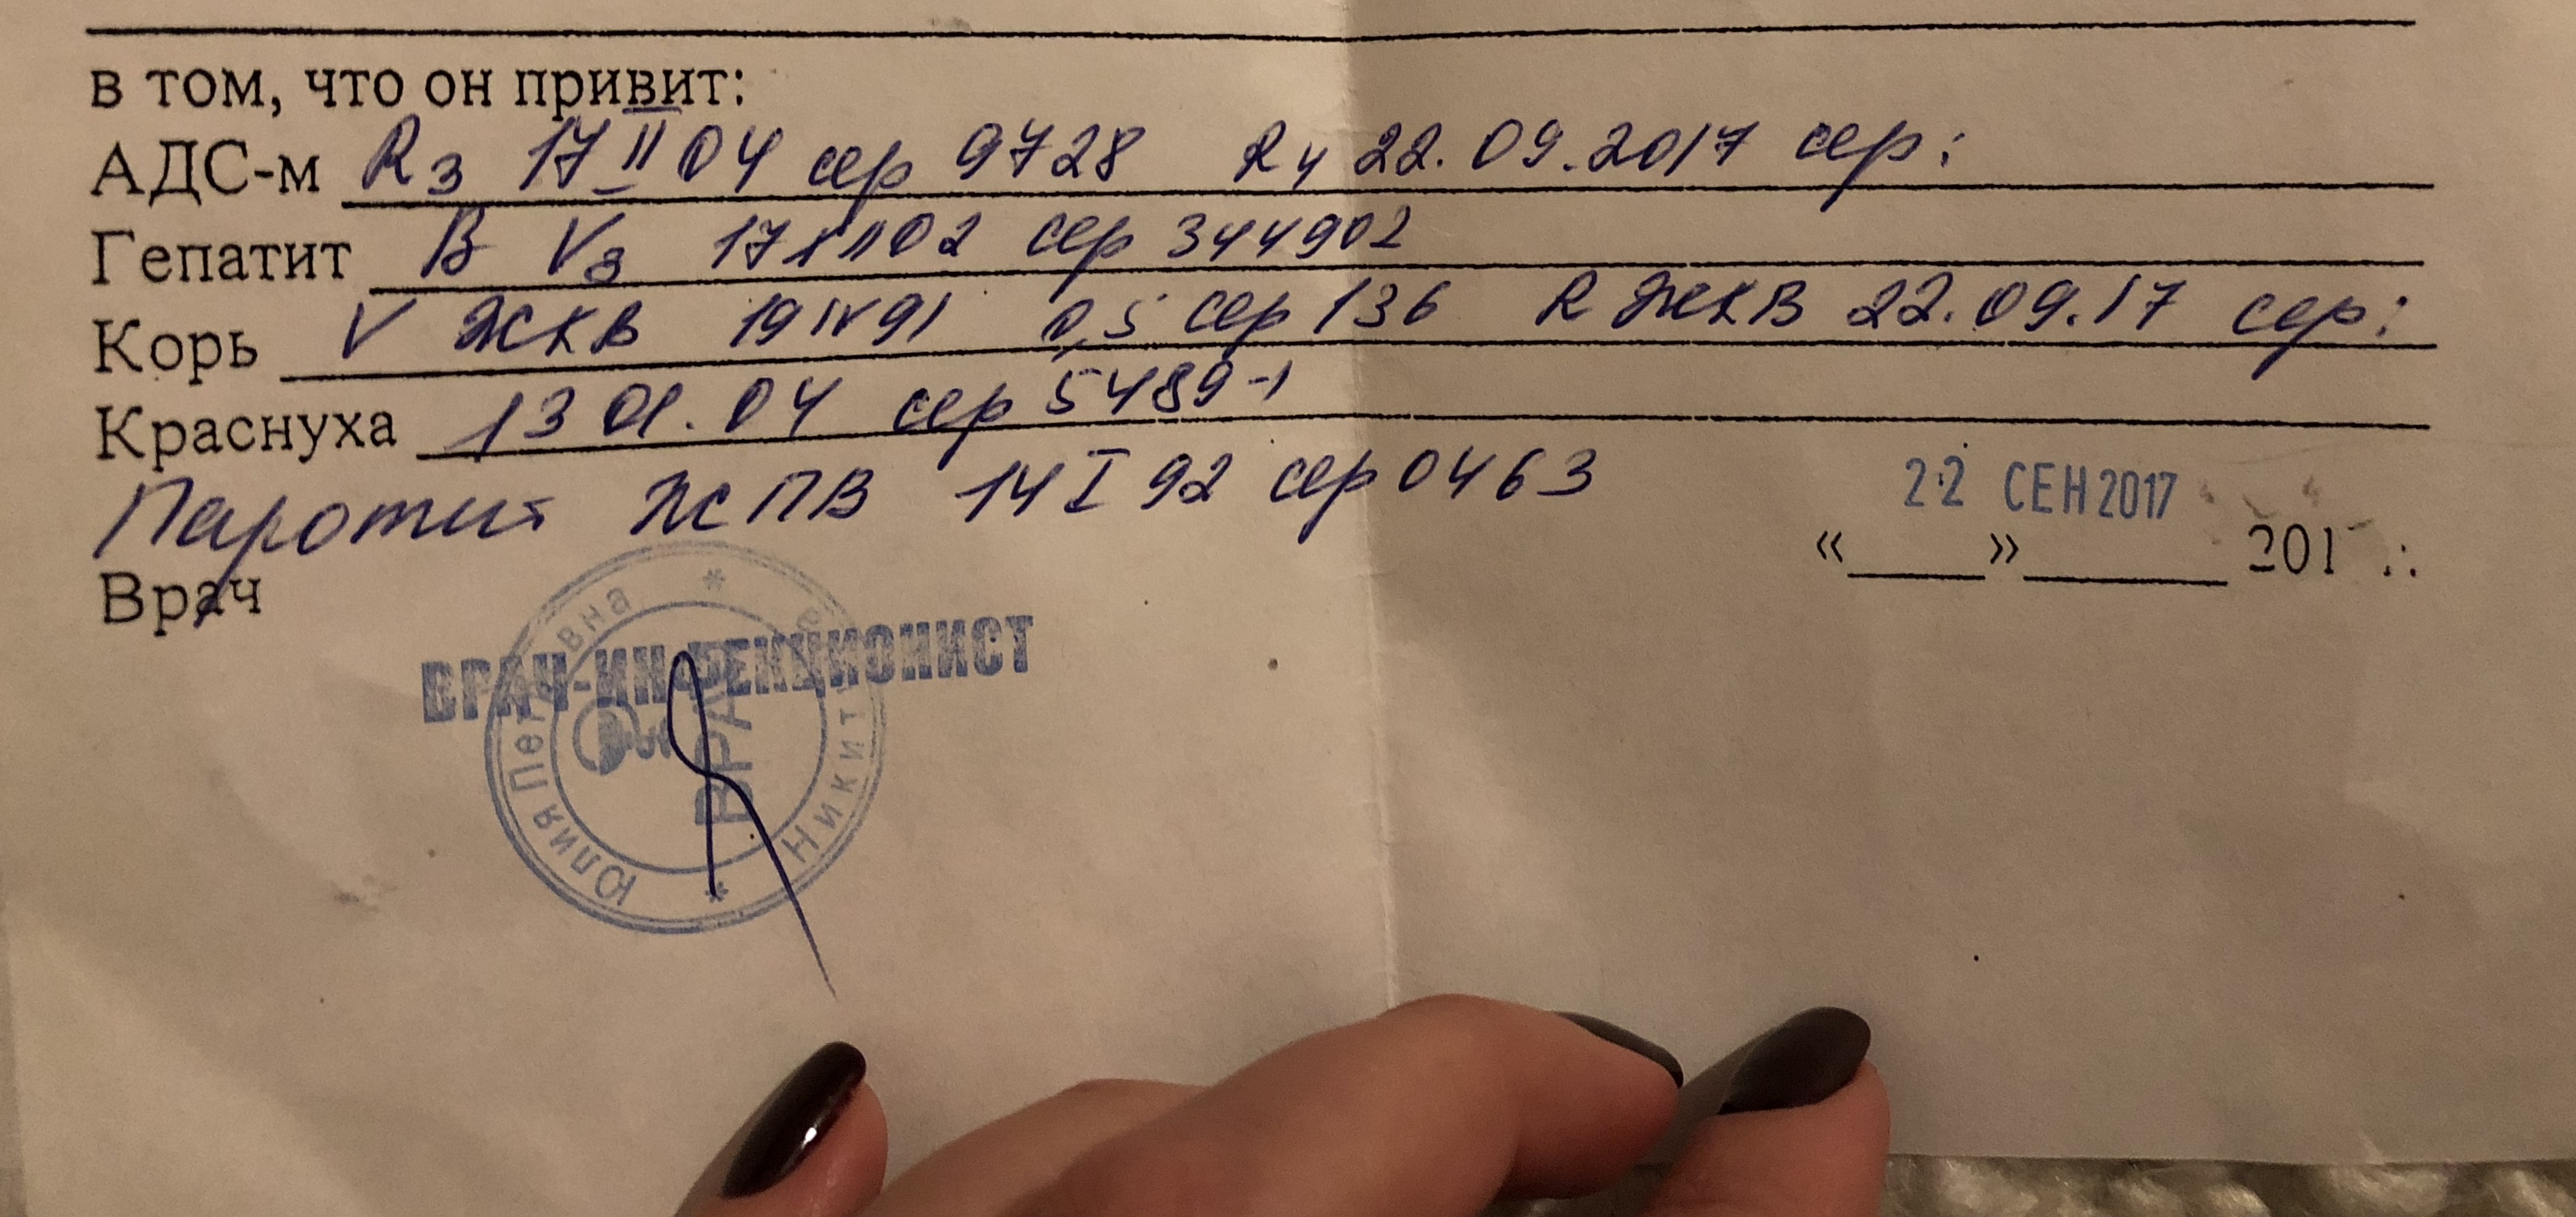 в том, что он привит:
АДС-м R3 17 II 04 сер 9728 R4 22.09.2017 сер:
Гепатит В V3 17 XII 02 сер 344902
Корь V ЖКВ 19 IV 91 0,5 сер 136 R ЖКВ 22.09.17 сер:
Краснуха 13 01.04 сер 5489-1
Паротит ЖПВ 14 I 92 сер 0463
22 СЕН 2017
« » 201
Врач
ВРАЧ-ИНФЕКЦИОНИСТ
Юлия
ВРАЧ